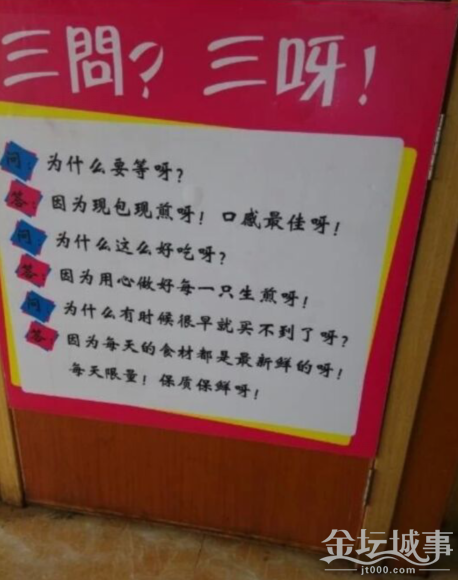 三問？三呀！
问：为什么要等呀？
答：因为现包现煎呀！口感最佳呀！
问：为什么这么好吃呀？
答：因为用心做好每一只生煎呀！
问：为什么有时候很早就买不到了呀？
答：因为每天的食材都是最新鲜的呀！
每天限量！保质保鲜呀！
金坛城事
jt000.com